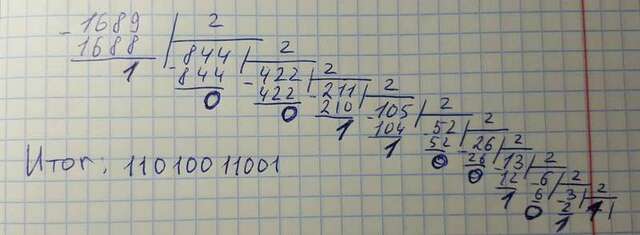 - 1689 | 2
1688 | - 844 | 2
1 844 | - 422 | 2
0 422 | - 211 | 2
0 210 | - 105 | 2
1 104 | - 52 | 2
1 52 | - 26 | 2
0 26 | - 13 | 2
0 12 | - 6 | 2
1 6 | - 3 | 2
0 2 | 1
1
Итог: 11010011001